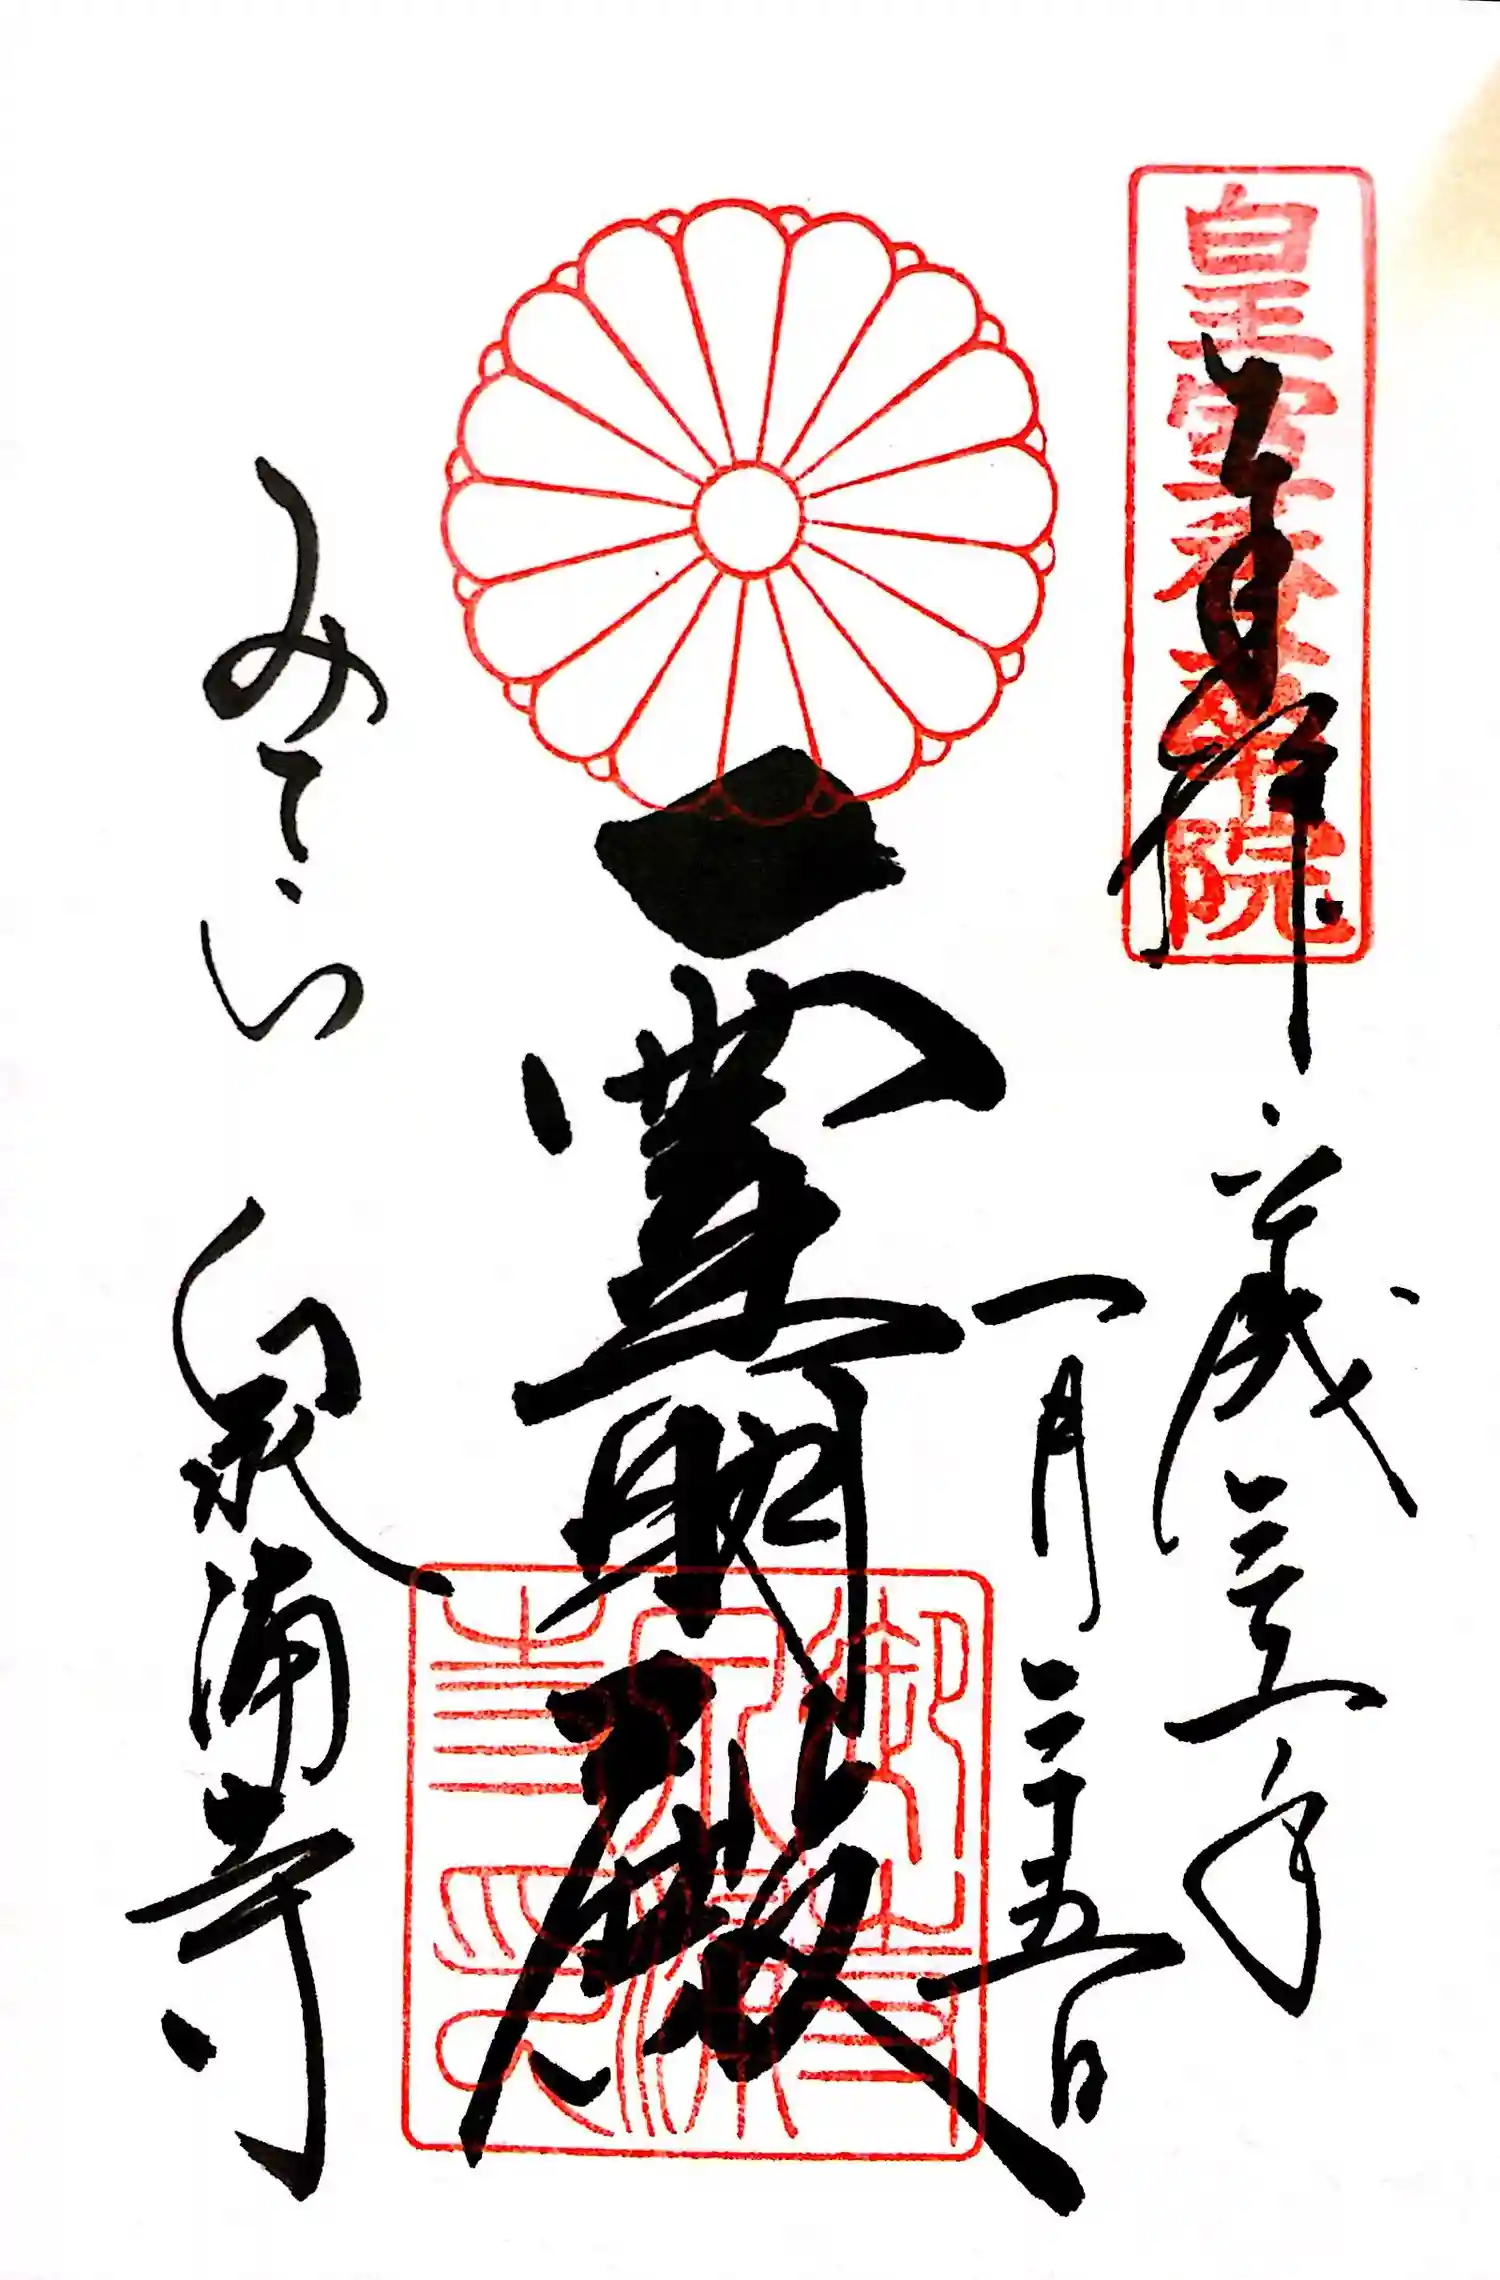 皇室香華院
奉拝
平成三十一年
一月二十五日
霊明殿
みてら
泉涌寺